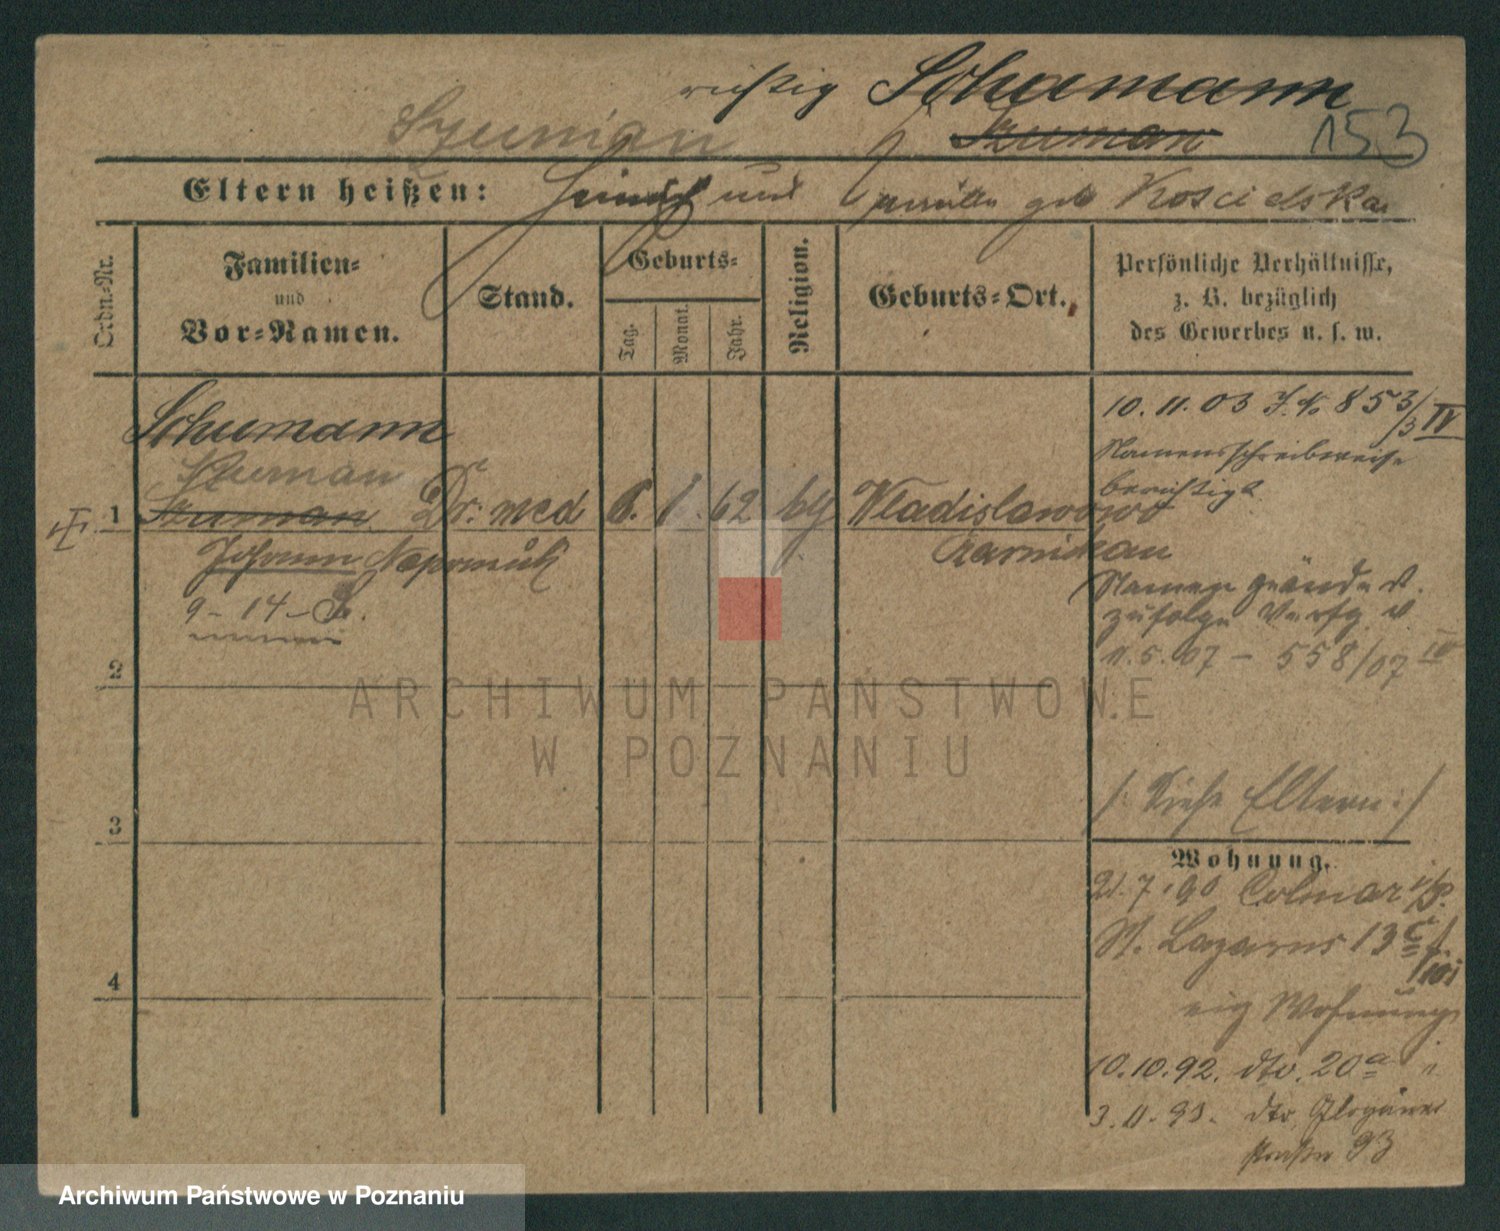 richtig Schumann
Szuman Szuman 153
Eltern heißen: Heinrich und geb Koscielska
Ordn.-Nr.
Familien-
und
Vor-Namen.
Stand.
Geburts-
Tag.
Monat.
Jahr.
Religion.
Geburts-Ort.
Persönliche Verhältnisse,
z. B. bezüglich
des Gewerbes u. s. w.
Schumann
Szuman
1 Szuman Dr. med 6. 1. 62 Wladislawowo
Johann Nepomuk Czarnikau
9-14-
10.11.03 J.No 853/3 IV
Namensschreibweise
berichtigt
Namen geändert
zufolge Verfg v.
11.5.07 - 558/07 IV
2
3
4
/: Siehe Eltern :/
Wohnung.
21.7.90 Colmar i/P.
St. Lazarus 13 c
eig Wohnung
10.10.92. dto. 20 a
3.11.93. dto. Glogauer
straße 93
ARCHIWUM PAŃSTWOWE
W POZNANIU
Archiwum Państwowe w Poznaniu